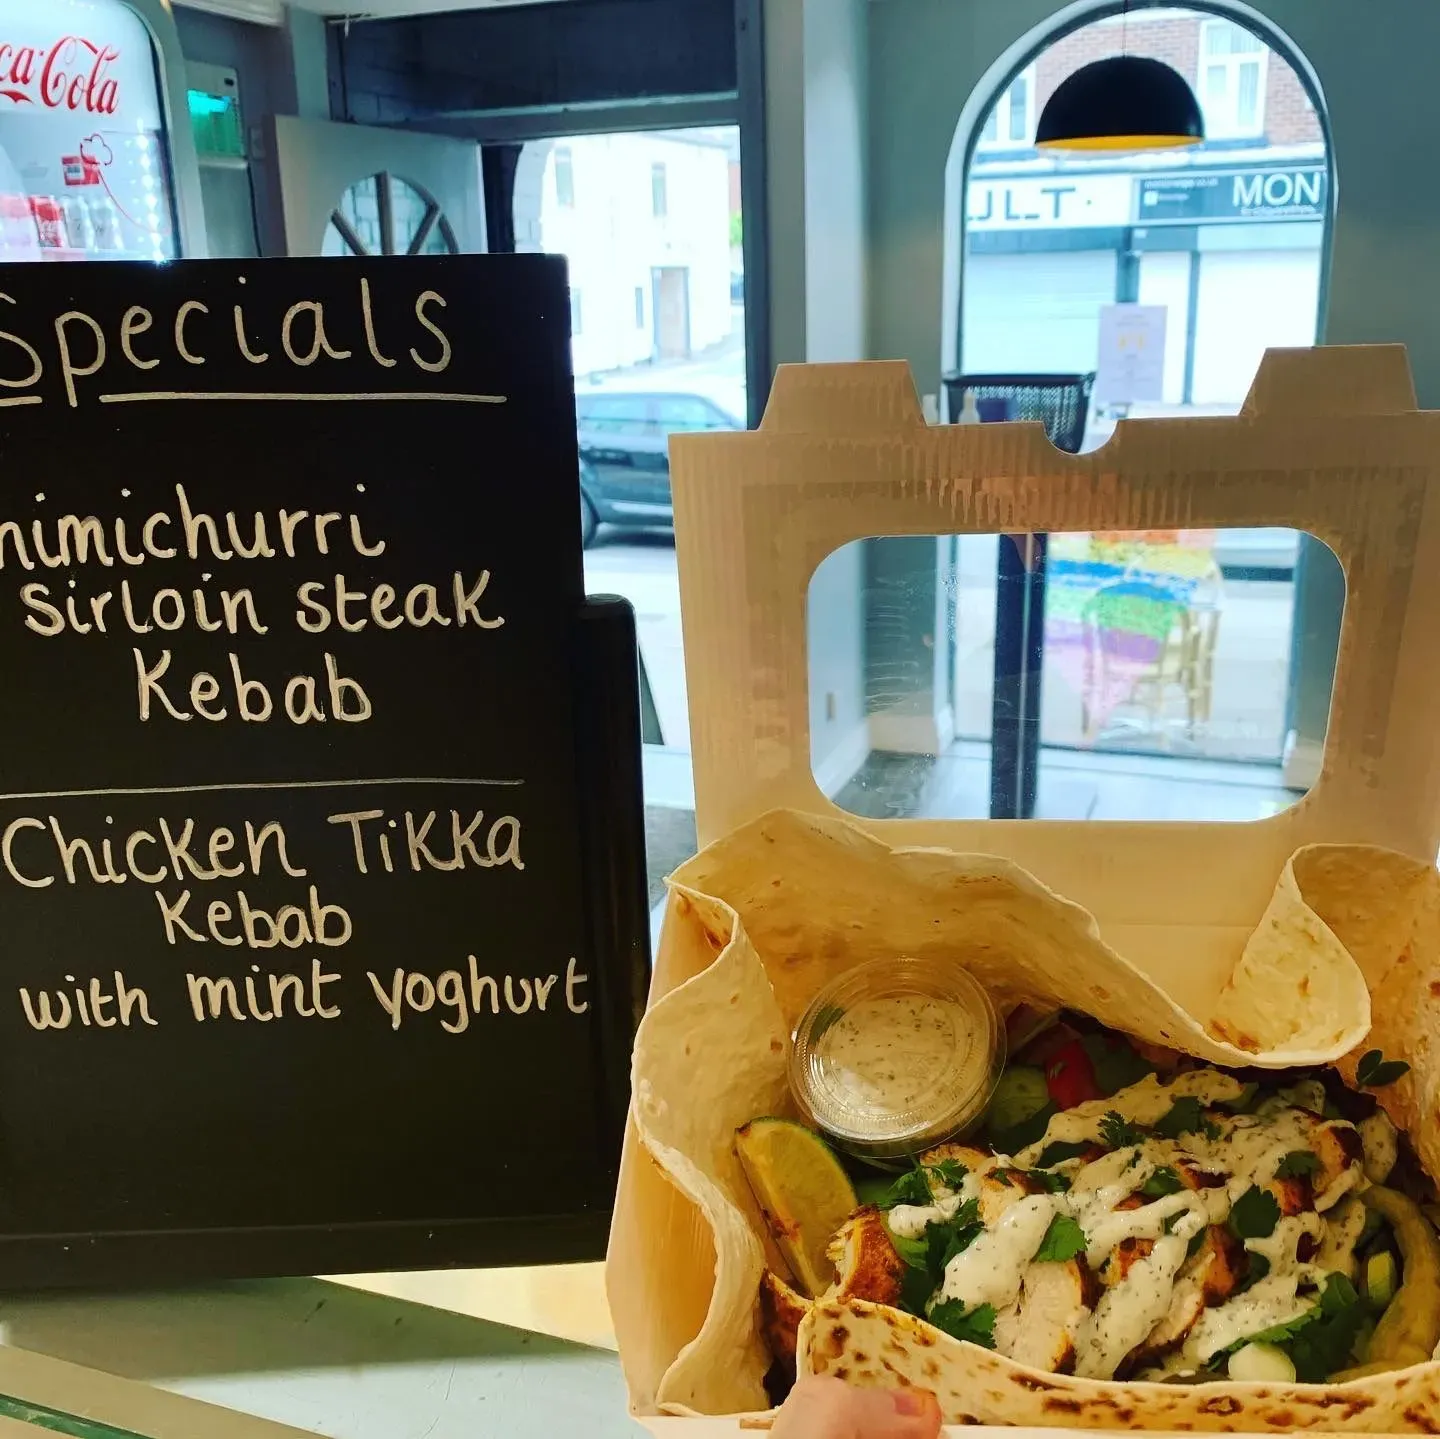 ca-Cola
Specials
himichurri
Sirloin Steak
Kebab
Chicken Tikka
Kebab
with mint yoghurt
ULT
MON